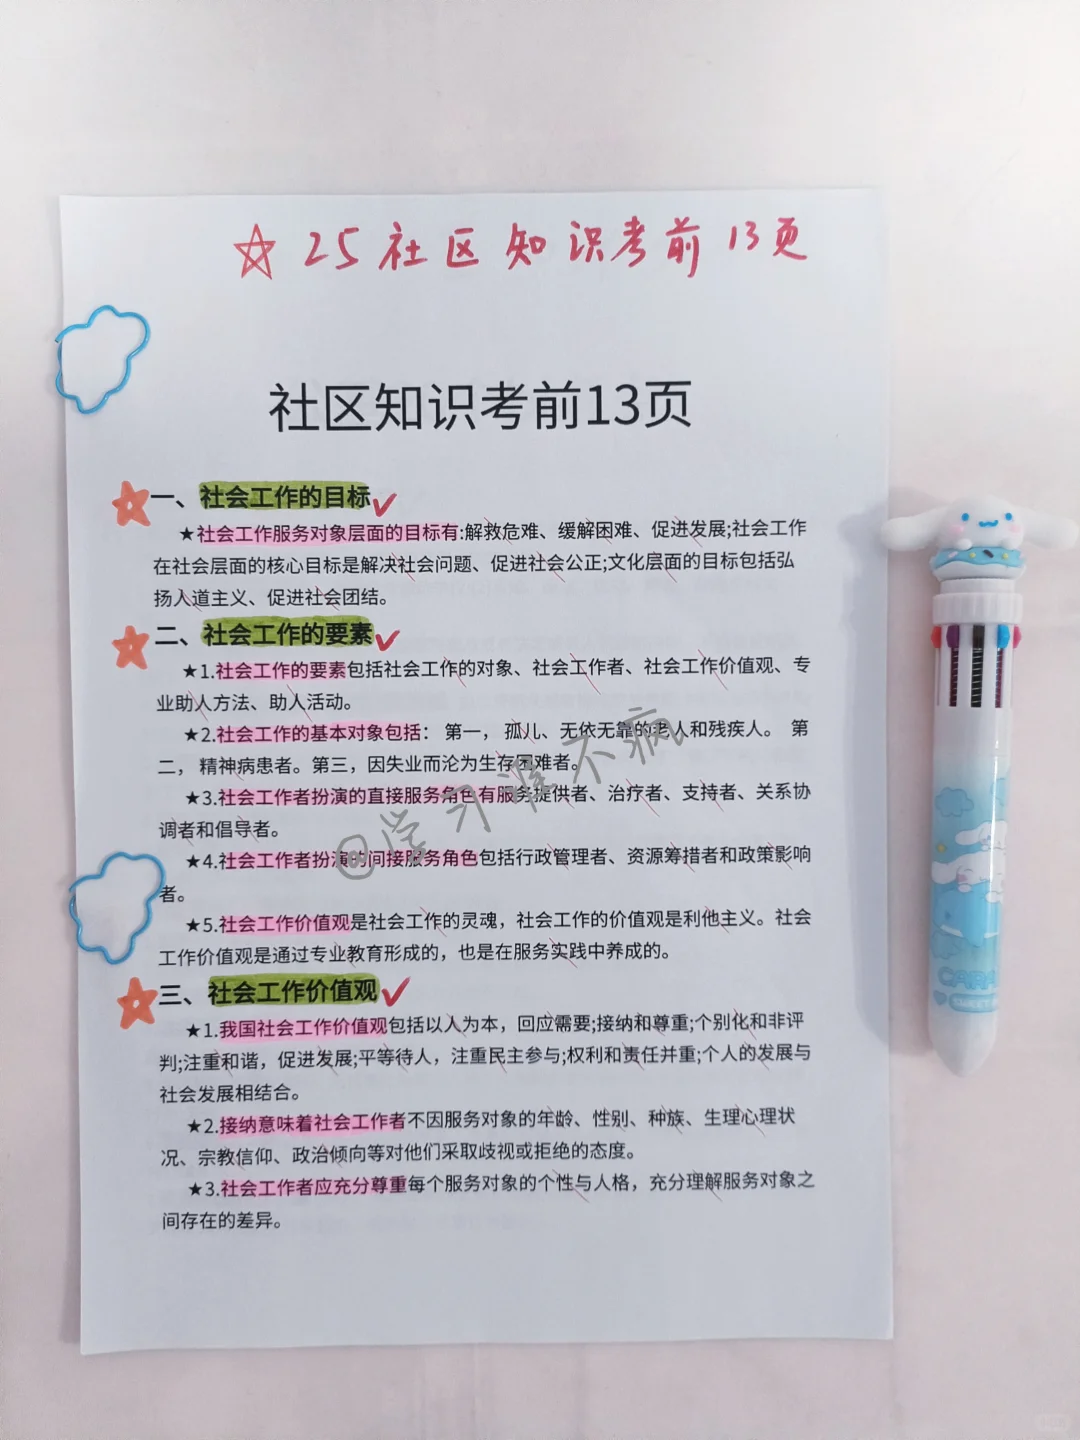 25社区知识考前13页
社区知识考前13页
一、社会工作的目标
★社会工作服务对象层面的目标有:解救危难、缓解困难、促进发展;社会工作
在社会层面的核心目标是解决社会问题、促进社会公正;文化层面的目标包括弘
扬人道主义、促进社会团结。
二、社会工作的要素
★1.社会工作的要素包括社会工作的对象、社会工作者、社会工作价值观、专
业助人方法、助人活动。
★2.社会工作的基本对象包括： 第一， 孤儿、无依无靠的老人和残疾人。 第
二， 精神病患者。第三，因失业而沦为生存困难者。
★3.社会工作者扮演的直接服务角色有服务提供者、治疗者、支持者、关系协
调者和倡导者。
★4.社会工作者扮演的间接服务角色包括行政管理者、资源筹措者和政策影响
者。
★5.社会工作价值观是社会工作的灵魂，社会工作的价值观是利他主义。社会
工作价值观是通过专业教育形成的，也是在服务实践中养成的。
三、社会工作价值观
★1.我国社会工作价值观包括以人为本，回应需要;接纳和尊重;个别化和非评
判;注重和谐，促进发展;平等待人，注重民主参与;权利和责任并重;个人的发展与
社会发展相结合。
★2.接纳意味着社会工作者不因服务对象的年龄、性别、种族、生理心理状
况、宗教信仰、政治倾向等对他们采取歧视或拒绝的态度。
★3.社会工作者应充分尊重每个服务对象的个性与人格，充分理解服务对象之
间存在的差异。
@学习谁不疯